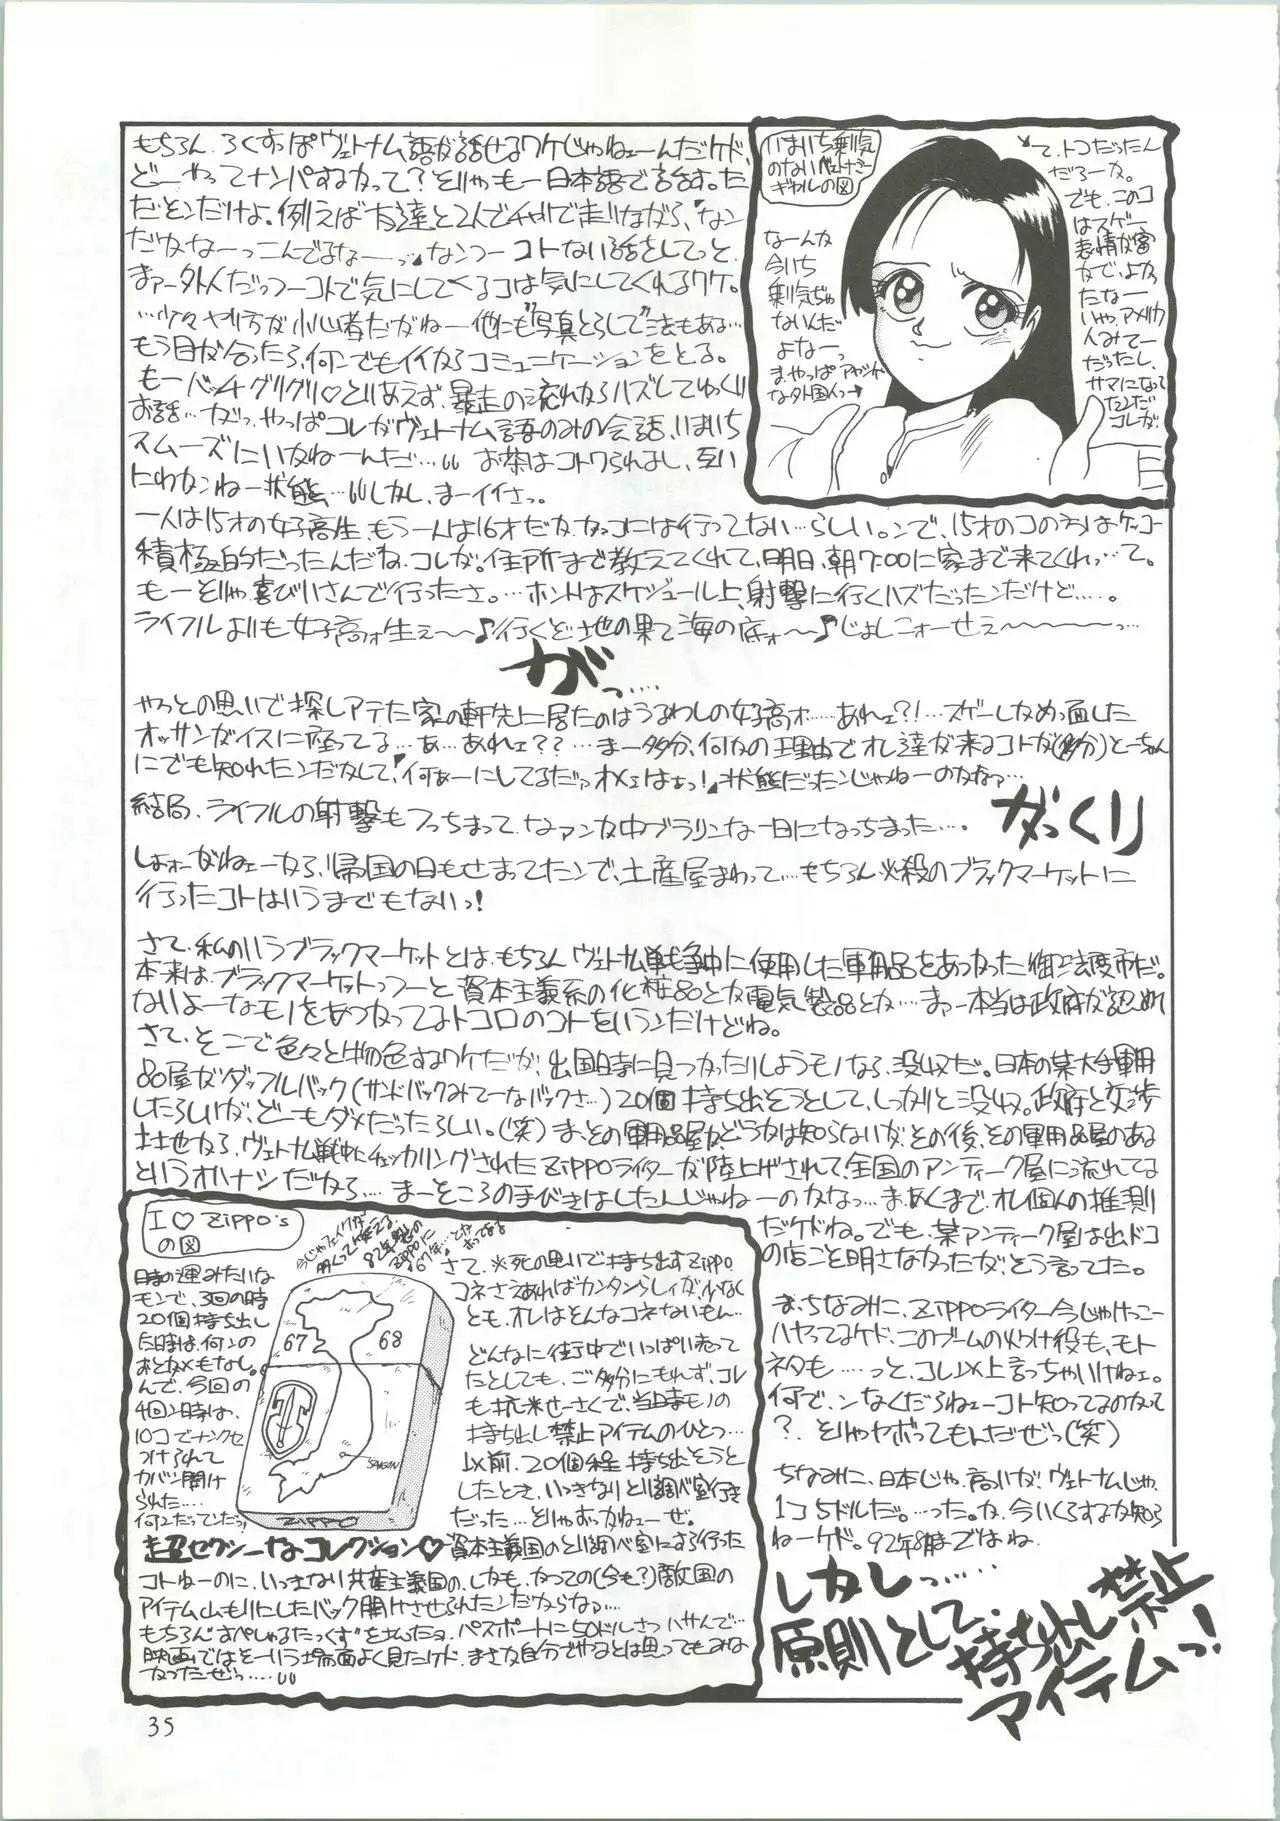 もちろん、ろくすっぽヴェトナム語が話せるワケじゃねェーんだケド、
どーやってナンパするかって？そりゃもー日本語で話す。ただ
だそンだけよ。例えば友達と2人でチャリで走りながら、「なン
だかなーっこんでるなーっ」なンつーコトない話をしてっと、
まァー外人だっつーコトで気にしてくるコは気にしてくれるワケ。
…少々やり方が小心者だがねー他にも"写真とらして"法もある…
もう目が合ったら、何ンでもイイからコミュニケーションをとる。
もーバッチグリグリ♡とりあえず、暴走の流れからハズしてゆっくり
お話…だっ、やっぱコレがヴェトナム語のみの会話、いまいち
スムーズにいかねーんだ…〃 お茶はコトワられるし、互い
にわかンねー状態…〃しかし、まーイイさっ。
一人は15才の女子高生、もう一人は16才だか、ガッコには行ってない…らしい。ンで、15才のコの方はケッコー
積極的だったんだね、コレが。住所まで教えてくれて、明日、朝7:00に家まで来てくれっ…て。
もーそりゃ喜びいさんで行ったさ。…ホントはスケジュール上、射撃に行くハズだったンだけど…。
ライフルよりも女子高ォ生ェ～～♪行くど地の果て海の底ォ～♪じょしこォーせェ～～～～～っ…
がっ….
やっとの思いで探しアテた家の軒先に居たのはうるわしの女子高オ……あれェ？！…スゲーしかめっ面した
オッサンがイスに座ってる…あ…あれェ？？…まー多分、何かの理由でオレ達が来るコトが(多分)とーちゃん
にでも知れたンだかして、「何ぁーにしてるだァオメェはよっ！」状態だったンじゃねーのかなァ…
結局、ライフルの射撃もフっちまって、なァンか中ブラリンな一日になっちまった…。
がっくり
しょォーがねェーから、帰国の日もせまってたンで、土産屋まわって…もちろん必殺のブラックマーケットに
行ったコトはいうまでもないっ！
さて、私のいうブラックマーケットとは、もちろんヴェトナム戦争中に使用した軍用品をあつかった御法度市だ。
本来は、ブラックマーケットっつーと資本主義系の化粧品とか電気製品とか…まァー本当は政府が認めれ
ないよーなモノをあつかってるトコロのコトをいうンだけどね。
さて、そこで色々と物色するワケだが、出国時に見つかったりしようモノなら、没収だ。日本の某大手軍用
品屋がダッフルバック(サンドバックみてーなバックさ…)20個持ち出そうとして、しっかりと没収。政府と交渉
したらしいが、どーもダメだったらしい。(笑)ま、その軍用品屋か、どうかは知らないが、その後、その軍用品屋のある
土地から、ヴェトナム戦中にチェッカリングされたZiPPOライターが陸上げされて、全国のアンティーク屋に流れてる
というオハナシだから…. まーそところの手びきはしたんじゃねーのかなっ…ま、あくまで、オレ個人の推測
だケドね。でも、某アンティーク屋は出ドコ
の店ごと明さなかったが、そう言ってた。
ま、ちなみに、ZiPPOライター今じゃけっこー
ハヤってるケド、このブームの火つけ役も、モト
ネタも……っと、コレ以上言っちゃいけねェ。
何で、ンなくだらねェーコト知ってるのかって
？．そりゃヤボってもんだぜっ(笑)
ちなみに、日本じゃ高いが、ヴェトナムじゃ、
1コ5ドルだ。…った。か、今いくらするか知ら
ねーケド。92年8月まではね。
しかしっ…..
原則として、持ち出し禁止
アイテムっ！
いまいち乗気
のないベトナミー
ギャルの図
なーんか
今いち
乗り気ぢゃ
ないんだ
よなーっ
まやっぱアヤシげ
な外国人っ→
て、トコだったん
だろーか。
でも、このコ
はスゲー
表情が豊
かで、よか
ったなー
いや、アメリカ
人みてー
だったし、
サマになって
たンだ
コレが。
I♡ZiPPO's
の図
時の運みたいな
モンで、3回の時
20個持ち出し
た時は、何ンの
おとがめもなし。
んで、今回の
4回ン時は、
10コでナンクセ
つけられて
カバン開け
られた….
何ンだってンだっ！
67
68
SAIGON
ZIPPO
さて、※死の思いで持ち出すZiPPO、
コネさえあればカンタンらしィが、少なく
とも、オレはそんなコネないもん…
どんなに街中でいっぱい売って
たとしても、ご多分にもれず、コレ
も抗米せーさくで、当時モノの
持ち出し禁止アイテムのひとつ…
以前、20個程持ち出そうと
したとき、いっきなりとり調べ室行き
だった…とりゃおっかねェーぜ。
超セクシーなコレクション♡
資本主義国のとり調べ室にすら行った
コトねーのに、いっきなり共産主義国の、しかも、かつての(今も？)敵国の
アイテム山もりにしたバック開けさせられたンだからなァ…
もちろん"すぺしゃるたっくす"を払ったョ、パスポートに50ドルさっハサんで…
映画ではそーいう場面よく見たケド、まさか自分でやるとは思ってもみな
かったぜっ….〃
35